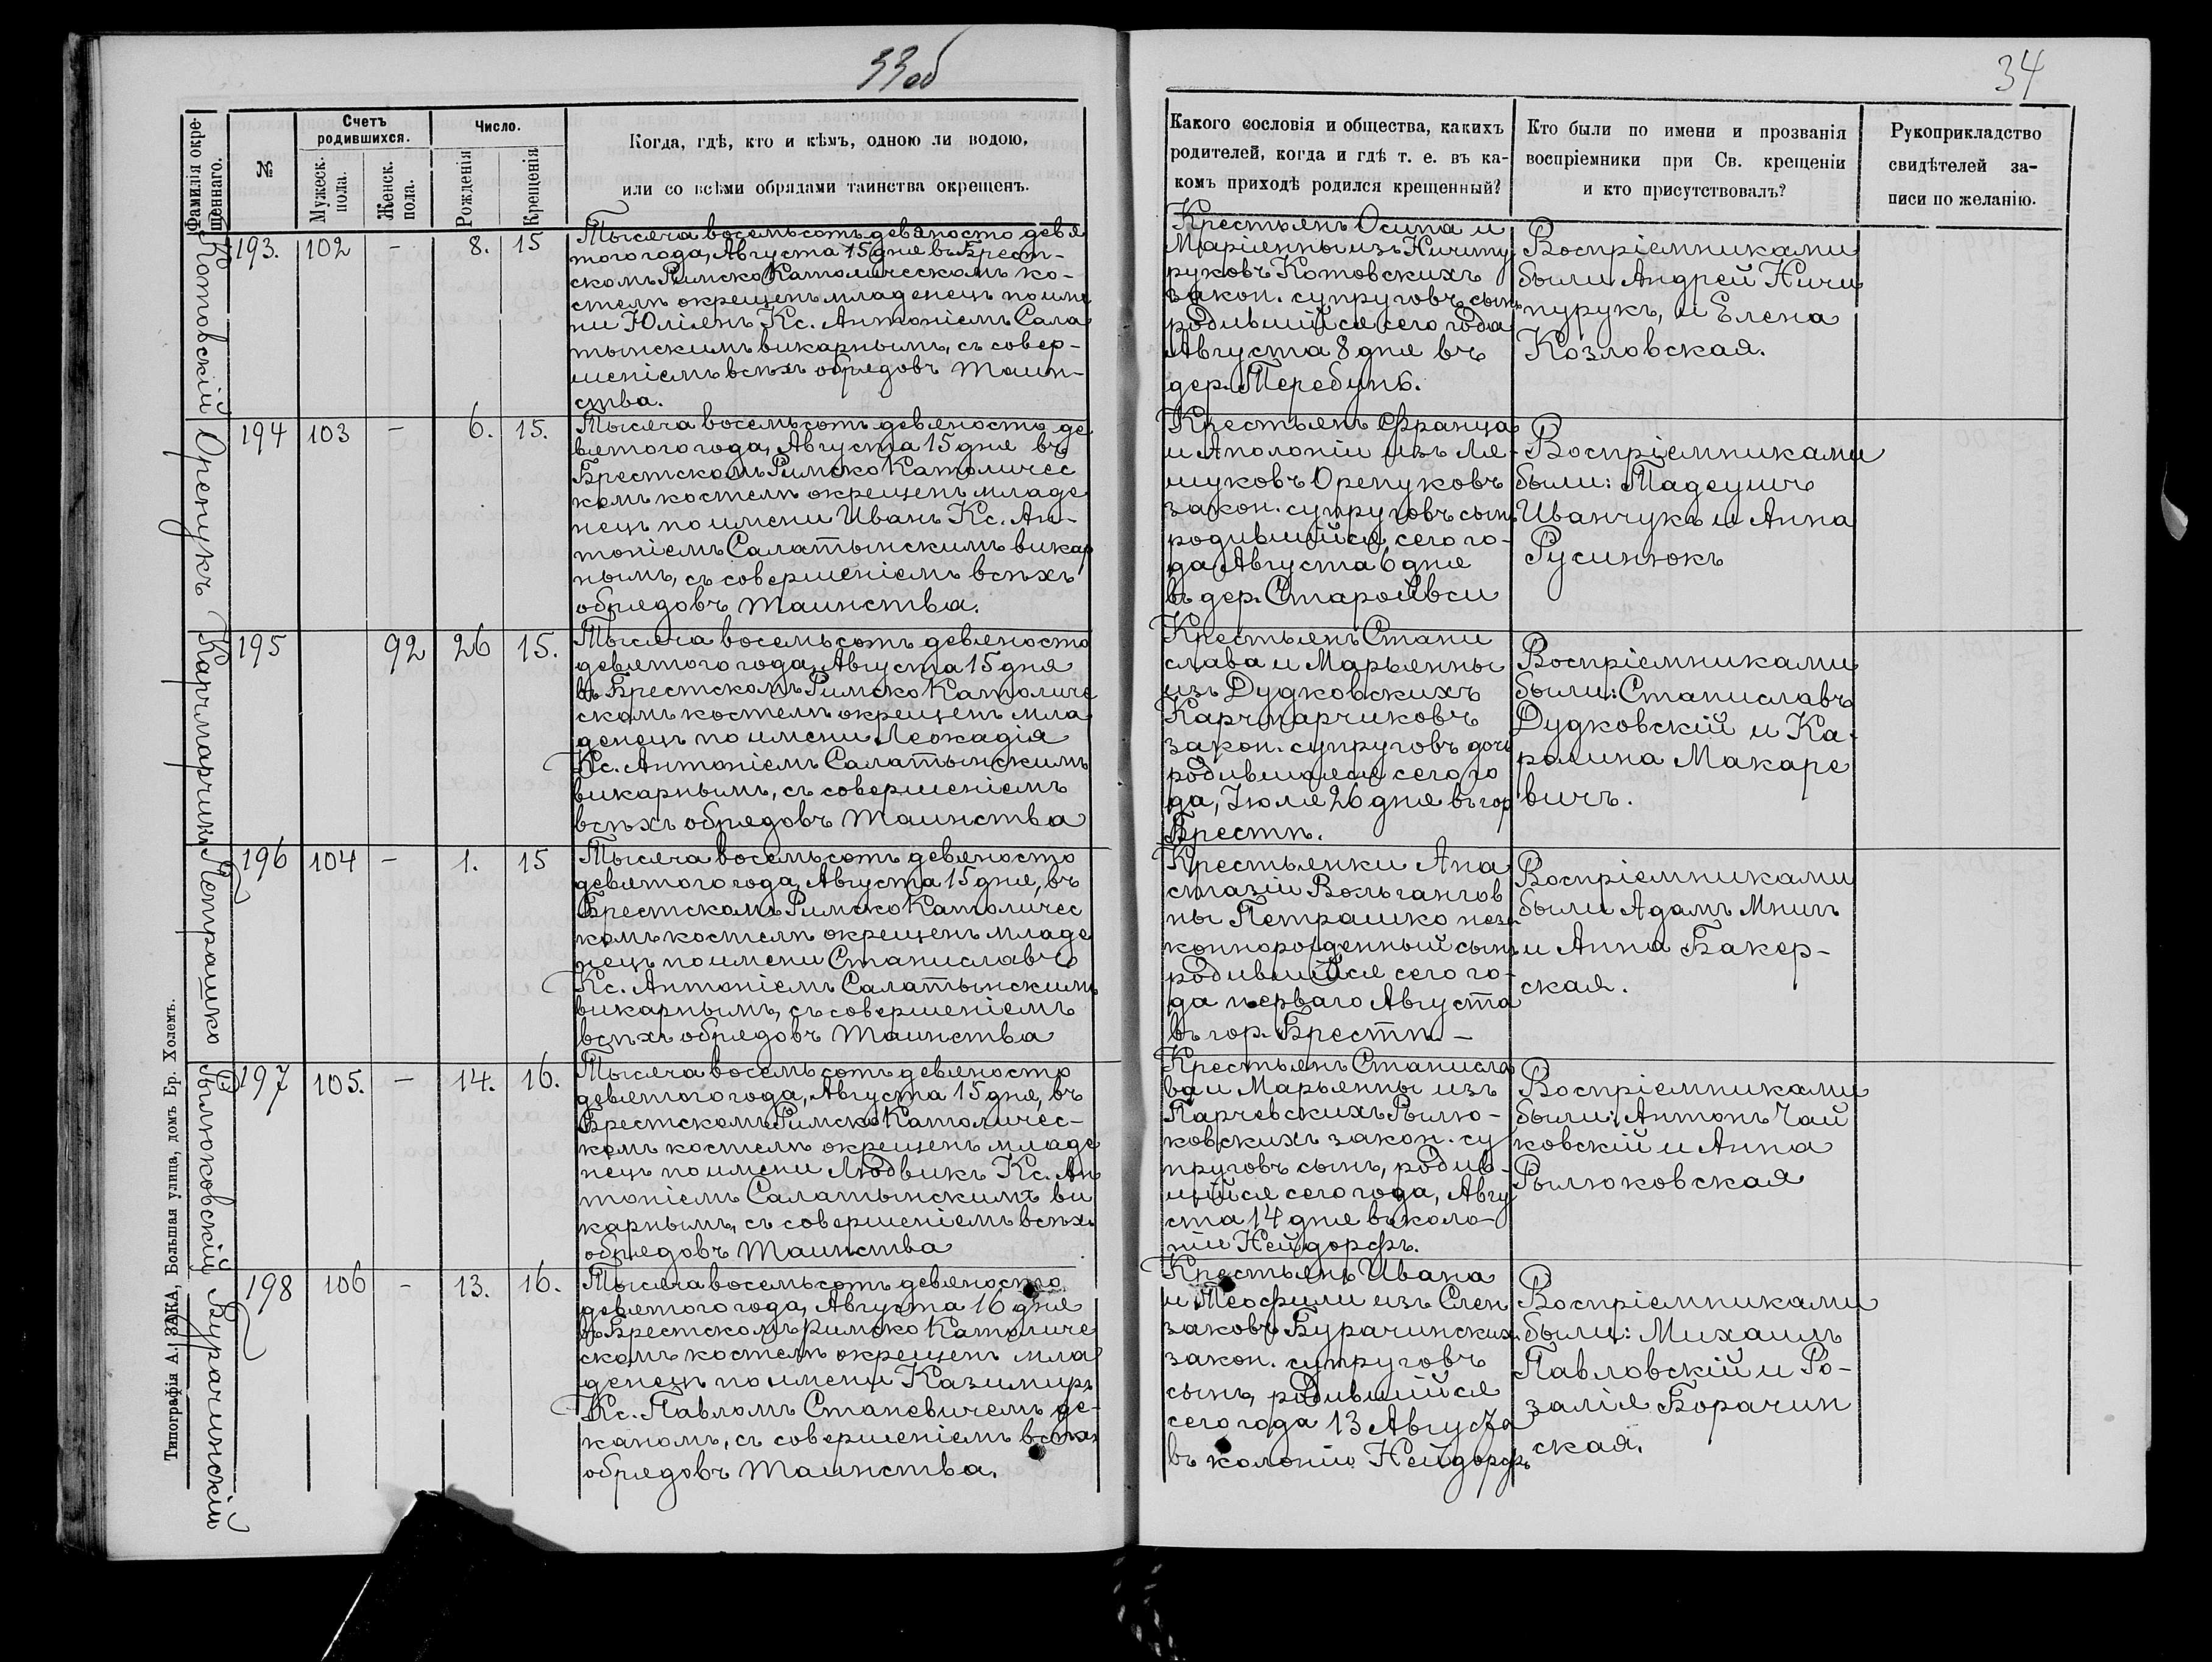 33об
34
Фамилія окре-
щеннаго.
№
Счетъ
родившихся.
Мужеск.
пола.
Женск.
пола.
Число.
Рожденія
Крещенія
Когда, гдѣ, кто и кѣмъ, одною ли водою,
или со всѣми обрядами таинства окрещенъ.
Какого сословія и общества, какихъ
родителей, когда и гдѣ т. е. въ ка-
комъ приходѣ родился крещенный?
Кто были по имени и прозванія
воспріемники при Св. крещеніи
и кто присутствовалъ?
Рукоприкладство
свидѣтелей за-
писи по желанію.
Котовскій
193. 102 - 8. 15
Тысяча восемьсотъ девяносто девя
того года, Августа 15 дня въ Брест-
скомъ Римско Католическомъ ко-
стелѣ окрещенъ младенецъ по име
ни Юліянъ Кс. Антоніемъ Сала
тынскимъ викарнымъ, съ совер-
шеніемъ всѣхъ обрядовъ таин-
ства.
Крестьянъ Осипа и
Маріянны изъ Ничипу
руковъ Котовскихъ
закон. супруговъ сынъ
родившійся сего года
Августа 8 дня въ
дер. Теребунь.
Воспріемниками
были Андрей Ничи
пурукъ, и Елена
Козловская.
Орепукъ
194 103 - 6. 15.
Тысяча восемьсотъ девяносто де
вятого года, Августа 15 дня въ
Брестскомъ Римско Католичес
комъ костелѣ окрещенъ младе
нецъ по имени Иванъ Кс. Ан-
тоніемъ Салатынскимъ викар
нымъ, съ совершеніемъ всѣхъ
обрядовъ таинства.
Крестьянъ Франца
и Аполоніи изъ Ля-
шуковъ Орепуковъ
закон. супруговъ сынъ
родившійся сего го-
да Августа 6 дня
въ дер. Старойвси
Воспріемниками
были: Тадеушъ
Иванчукъ и Анна
Русинюкъ
Карчмарчикъ
195 92 26 15.
Тысяча восемьсотъ девяносто
девятого года, Августа 15 дня
въ Брестскомъ Римско Католиче
скомъ костелѣ окрещенъ мла
денецъ по имени Леокадія
Кс. Антоніемъ Салатынскимъ
викарнымъ, съ совершеніемъ
всѣхъ обрядовъ таинства
Крестьянъ Стани
слава и Марьянны
изъ Дудковскихъ
Карчмарчиковъ
закон. супруговъ дочь
родившаяся сего го
да, Іюля 26 дня въ гор
Брестѣ.
Воспріемниками
были: Станиславъ
Дудковскій и Ка-
ролина Макаре
вичъ.
Петрашко
196 104 - 1. 15
Тысяча восемьсотъ девяносто
девятого года, Августа 15 дня, въ
Брестскомъ Римско Католичес
комъ костелѣ окрещенъ младе
нецъ по имени Станиславъ
Кс. Антоніемъ Салатынскимъ
викарнымъ, съ совершеніемъ
всѣхъ обрядовъ таинства
Крестьянки Ана
стазіи Вольгангов
ны Петрашко неза
коннорожденный сынъ
родившійся сего го-
да перваго Августа
въ гор. Брестѣ -
Воспріемниками
были Адамъ Мнихъ
и Анна Бакер-
ская.
Рылюковскій
197 105. - 14. 16.
Тысяча восемьсотъ девяносто
девятого года, Августа 15 дня, въ
Брестскомъ Римско Католичес-
комъ костелѣ окрещенъ младе
нецъ по имени Людвикъ Кс. Ан
тоніемъ Салатынскимъ ви
карнымъ, съ совершеніемъ всѣхъ
обрядовъ таинства
Крестьянъ Станисла
ва и Марьянны изъ
Парчевскихъ Рылю-
ковскихъ закон. су
пруговъ сынъ, родив-
шійся сего года, Авгу
ста 14 дня въ коло-
ніи Нейдорфъ.
Воспріемниками
были: Антонъ Чай
ковскій и Анна
Рылюковская
Бурачинскій
198 106 - 13. 16.
Тысяча восемьсотъ девяносто
девятого года, Августа 16 дня
въ Брестскомъ римско Католиче
скомъ костелѣ окрещенъ мла
денецъ по имени Казимиръ
Кс. Павломъ Станевичемъ де-
каномъ, съ совершеніемъ всѣхъ
обрядовъ таинства.
Крестьянъ Ивана
и Теофили изъ Слен
заковъ Бурачинскихъ
закон. супруговъ
сынъ, родившійся
сего года 13 Августа
въ колоніи Нейдорфъ
Воспріемниками
были: Михаилъ
Павловскій и Ро-
залія Борачин
ская.
Типографія А. ЗАКА, Большая улица, домъ Ер. Холемъ.